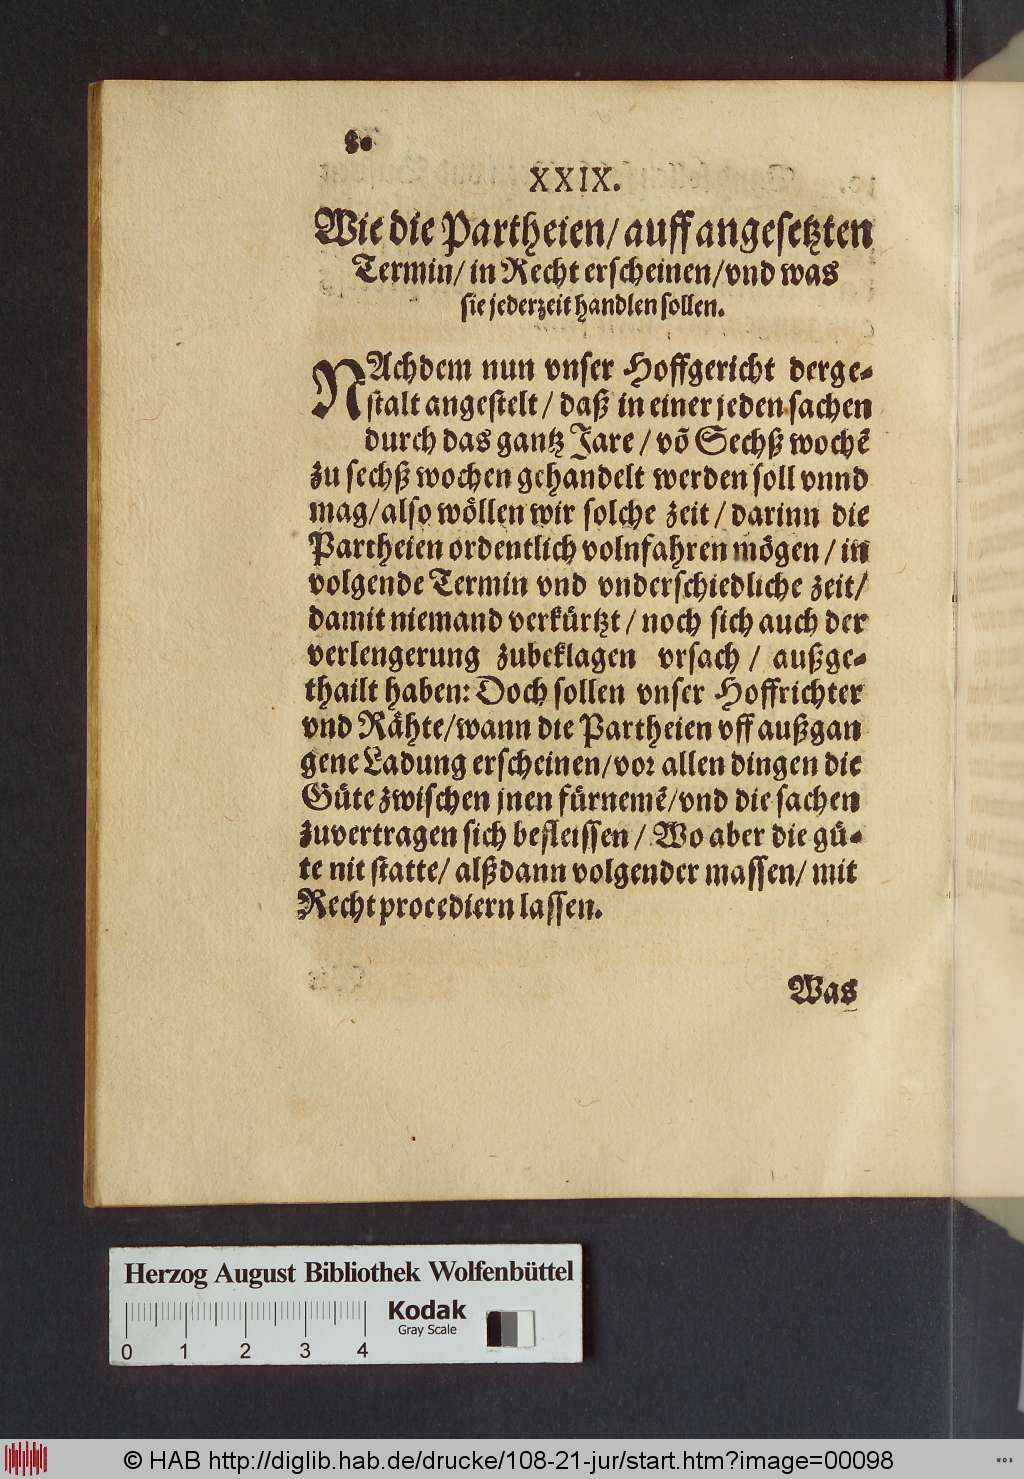 80
XXIX.
Wie die Partheien/ auff angesetzten
Termin/ in Recht erscheinen/ vnd was
sie jederzeit handlen sollen.
NAchdem nun vnser Hoffgericht derge-
stalt angestelt / daß in einer jeden sachen
durch das gantz Jare / võ Sechß wochẽ
zu sechß wochen gehandelt werden soll vnnd
mag/ also wöllen wir solche zeit / darinn die
Partheien ordentlich volnfahren mögen / in
volgende Termin vnd vnderschiedliche zeit/
damit niemand verkürtzt / noch sich auch der
verlengerung zubeklagen vrsach / außge-
thailt haben: Doch sollen vnser Hoffrichter
vnd Rähte/ wann die Partheien vff außgan
gene Ladung erscheinen/ vor allen dingen die
Güte zwischen jnen fürnemẽ/ vnd die sachen
zuvertragen sich befleissen / Wo aber die gü-
te nit statte/ alßdann volgender massen/ mit
Recht procediern lassen.
Was
Herzog August Bibliothek Wolfenbüttel
Kodak
Gray Scale
0 1 2 3 4
© HAB http://diglib.hab.de/drucke/108-21-jur/start.htm?image=00098